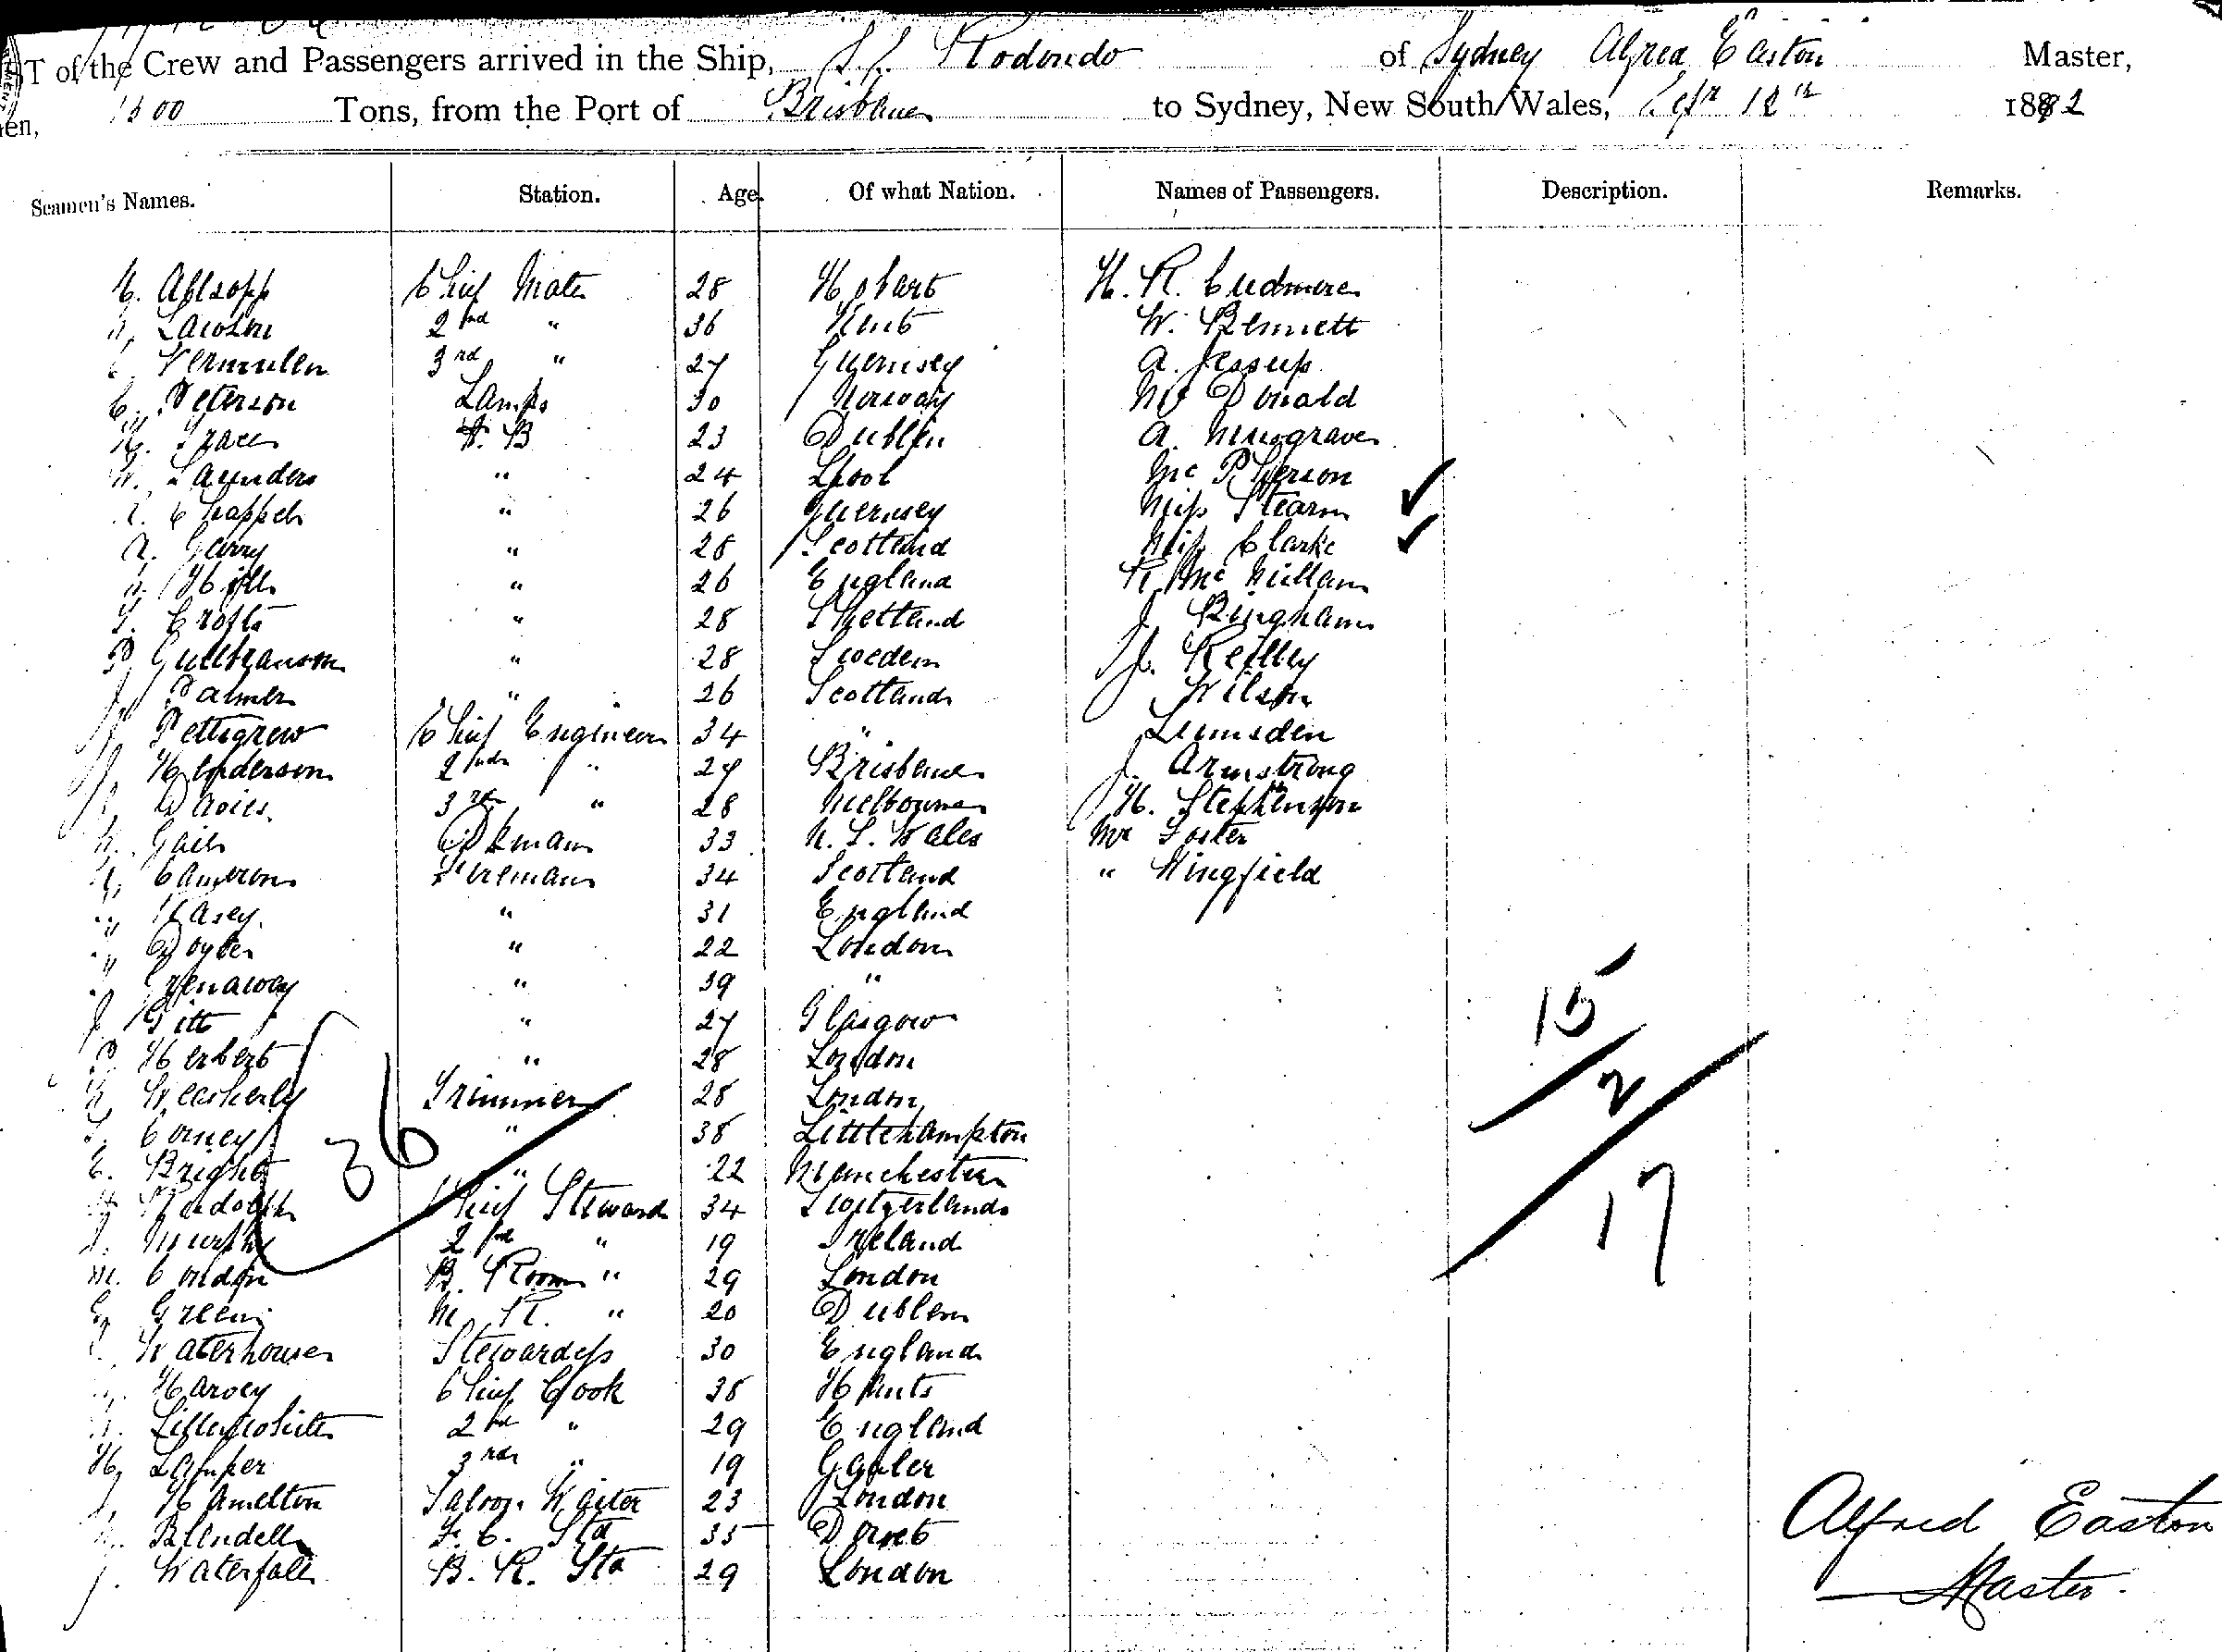 T of the Crew and Passengers arrived in the Ship, S.S. Rodondo of Sydney Alfred Easton Master,
1500 Tons, from the Port of Brisbane to Sydney, New South Wales, Sepr 12th 1882
en,
Seamen's Names. Station. Age. Of what Nation. Names of Passengers. Description. Remarks.
Allsopp Chief Mate 28 Hobart H. R. Cudmore
Lawson 2nd " 36 Kent W. Bennett
Vermullen 3rd " 27 Guernsey A. Jessup
C. Peterson Lamps 30 Norway Mc Donald
Grace A. B 23 Dublin A. Musgrave
W. Saunders " 24 Lpool Mc Pherson
Chappel " 26 Guernsey Miss Stearn
Garry " 28 Scotland Miss Clarke
Hill " 26 England R. Mc Millan
Crofts " 28 Shetland J. Bingham
P. Gullbranson " 28 Sweden J. Reilley
J. Palmer " 26 Scotland Wilson
J. Pettigrew Chief Engineer 34 " Lumsden
J. Henderson 2nd " 27 Brisbane J. Armstrong
Davies 3rd " 28 Melbourne H. Stephenson
Gail Dkman 33 N. S. Wales Mr Foster
Cameron Fireman 34 Scotland " Wingfield
" Casey " 31 England
" Doyle " 22 London
" Grenaway " 39 "
J. Pitt " 27 Glasgow
P. Herbert " 28 London
Weekerly Trimmer 28 London
Corney " 38 Littlehampton
E. Bright " 22 Manchester
Rudolph Chief Steward 34 Switzerland
Murphy 2nd " 19 Ireland
M. Condon B. Room " 29 London
G. Green M. R. " 20 Dublin
Waterhouse Stewardess 30 England
Harvey Chief Cook 38 Hants
Lillywhite 2nd " 29 England
H. Lamper 3rd " 19 Gawler
J. Hamelton Saloon Waiter 23 London
Blundell F. C. Std 35 Dorset
J. Waterfall B. R. Std 29 London
36
15
2
17
Alfred Easton
Master.